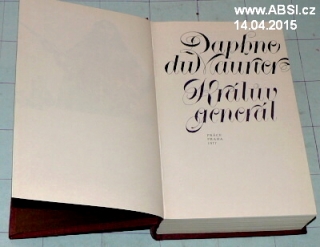 www.ABSI.cz
14.04.2015
Daphne
du Maurier
Králův
generál
PRÁCE
PRAHA